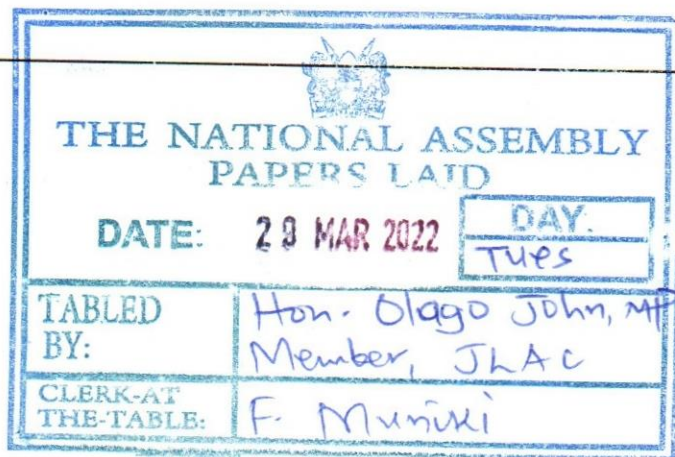 THE NATIONAL ASSEMBLY
PAPERS LAID
DATE: 29 MAR 2022 DAY:
Tues
TABLED BY: Hon. Olago John, MP
Member, JLAC
CLERK-AT THE-TABLE: F. Muriuki